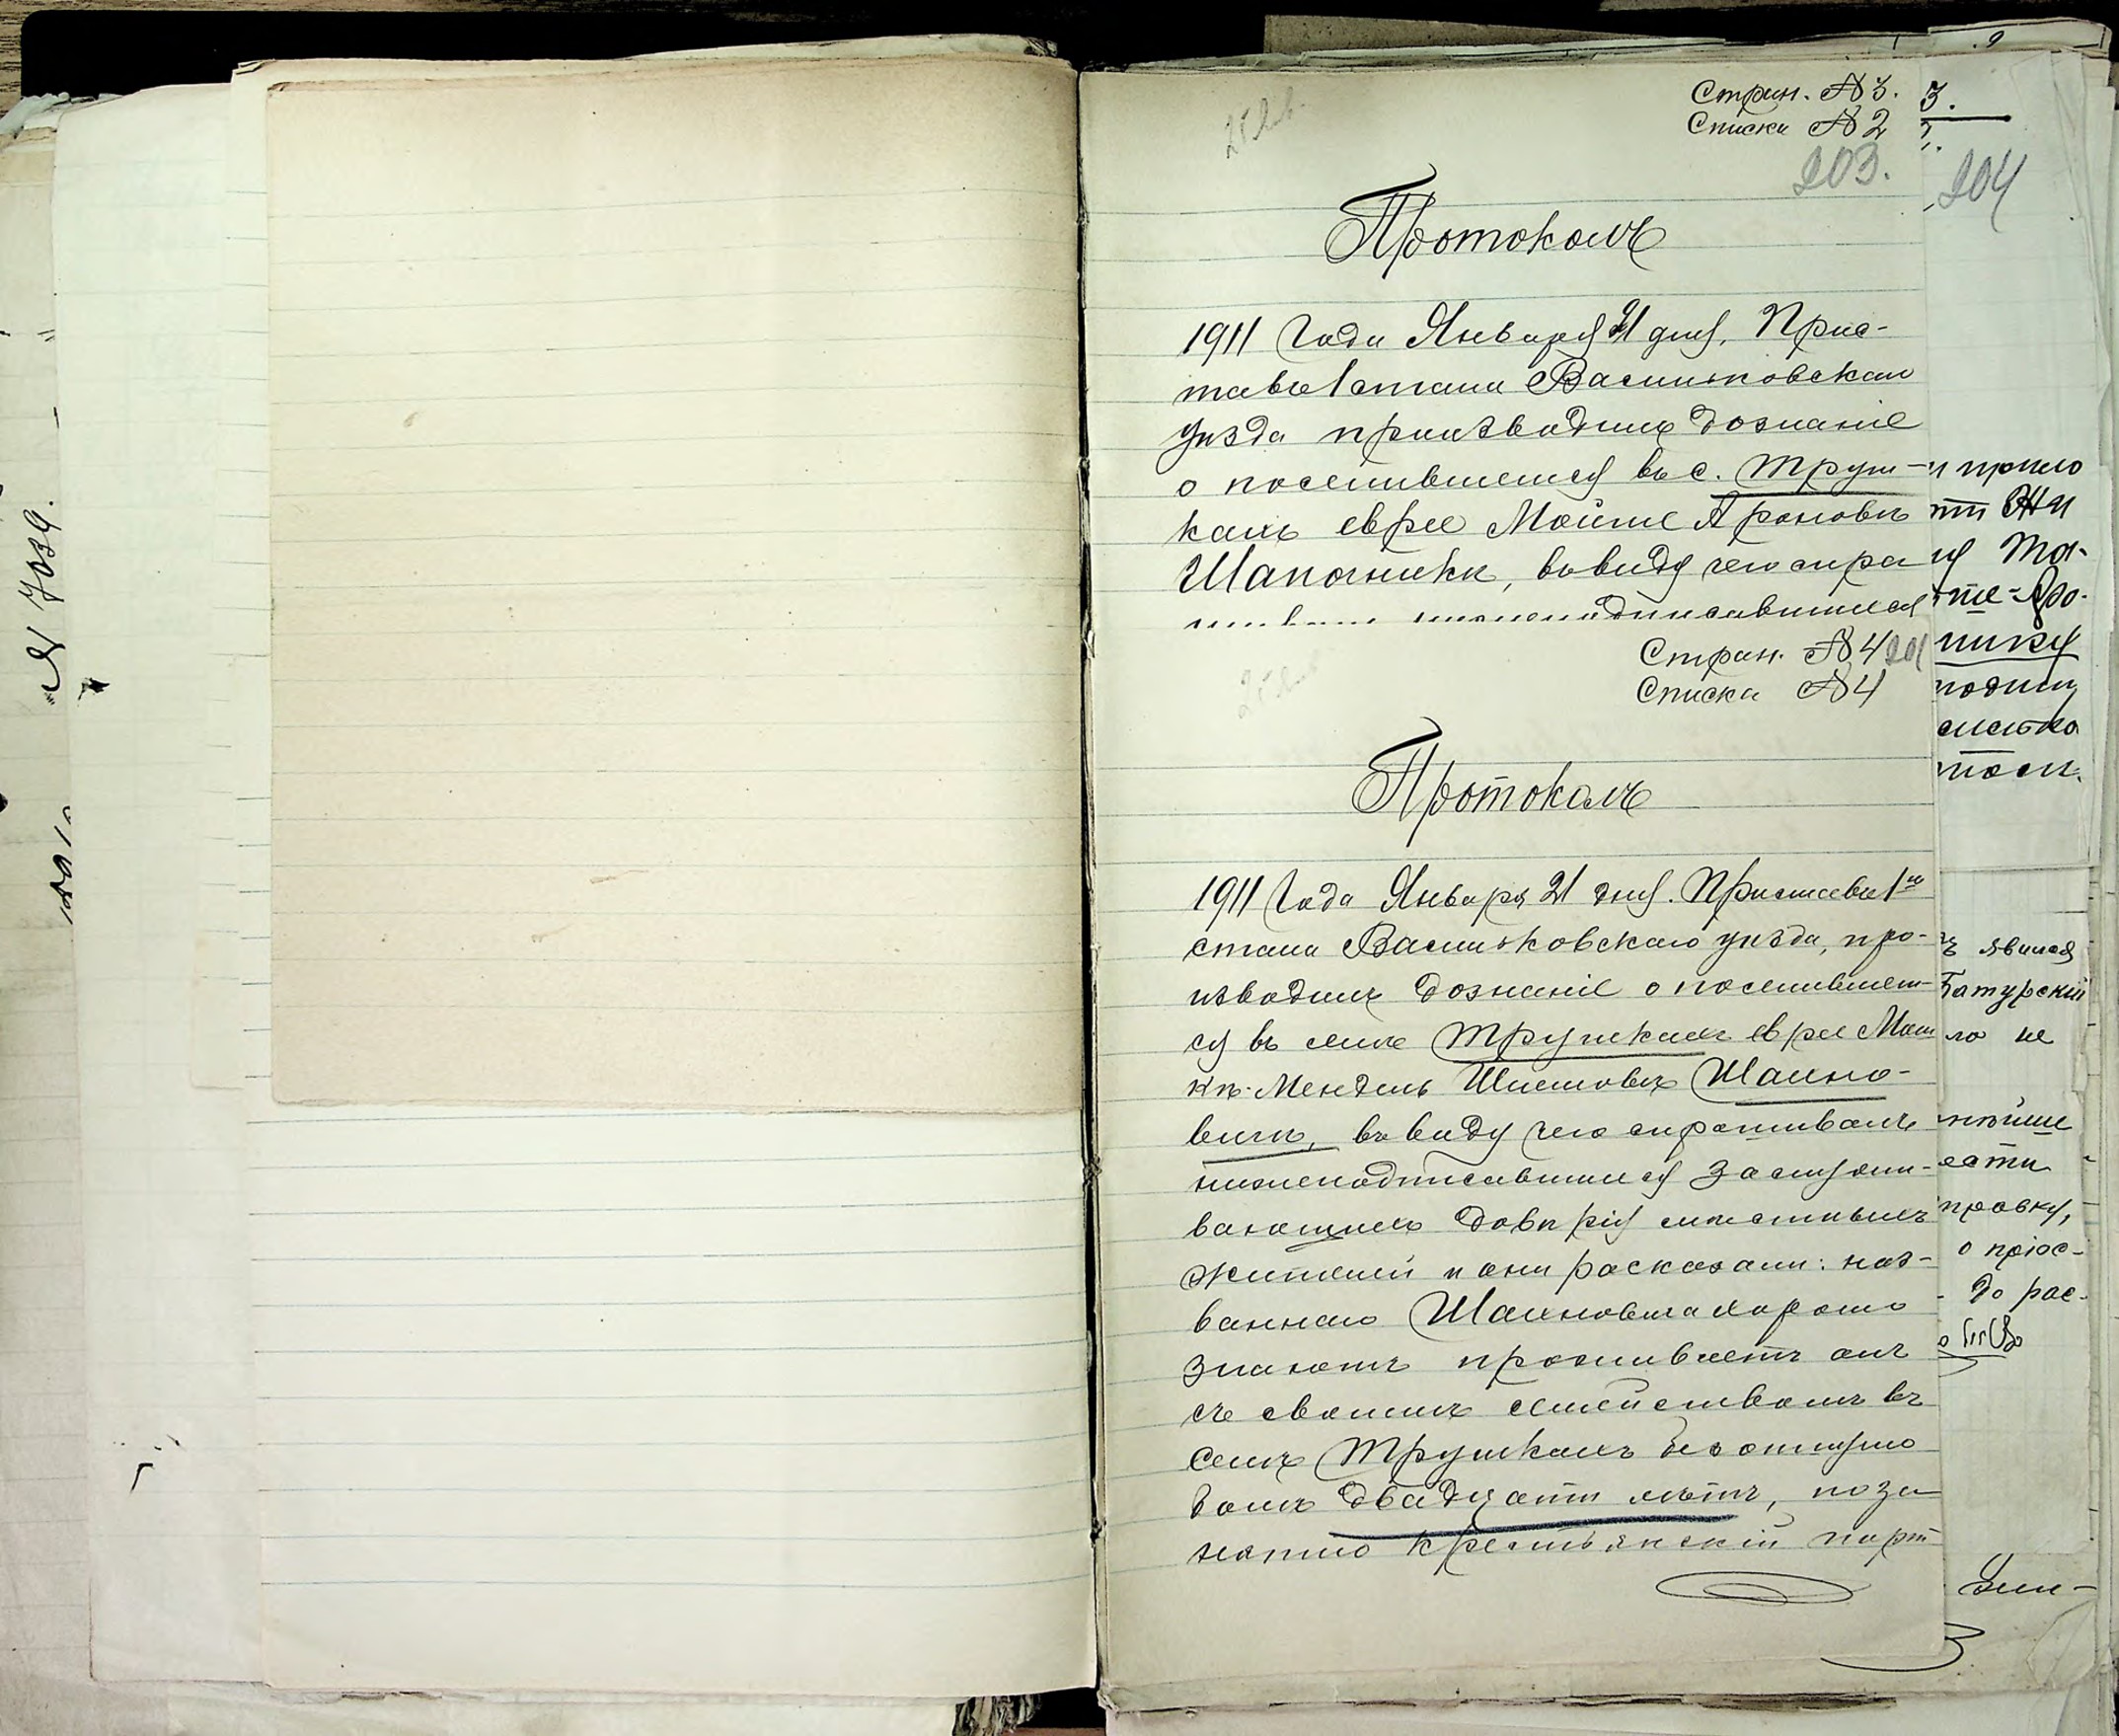 Стран. № 3.
Списка № 2
203.
Протоколъ
1911 Года Января 21 дня, Прис-
тавъ 1 стана Васильковскаго
уѣзда производилъ дознаніе
о поселившемся въ с. Труш-
кахъ евреѣ Мойше Ароновѣ
Шапочникѣ, ввиду чего спра
нижеподписавшихся
Стран. № 4
Списка № 4
Протоколъ
1911 Года Января 21 дня. Приставъ 1го
стана Васильковскаго уѣзда, про-
изводилъ дознаніе о поселившем-
ся въ селѣ Трушкахъ евреѣ Мош
кѣ-Мендель Шлемовѣ Шахно-
вичѣ, въ виду чего спрашивалъ
нижеподписавшихся заслужи-
вающихъ довѣрія мѣстныхъ
жителей и они расказали: наз-
ваннаго Шахновича хорошо
знаютъ проживаетъ онъ
съ своимъ семействомъ въ
селѣ Трушкахъ безотлучно
болѣе двадцати лѣтъ, по за
нятію крестьянскій порт
3.
2.
204
и прпло
ся
Яро-
нику
подпи
явился
Батурскій
ло не
правку,
о пріос-
до рас-
№ 7039.